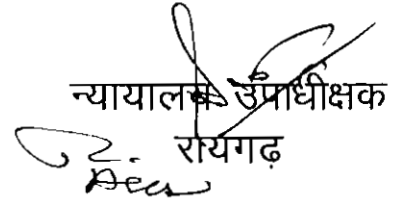 न्यायालय उपाधीक्षक
रायगढ़